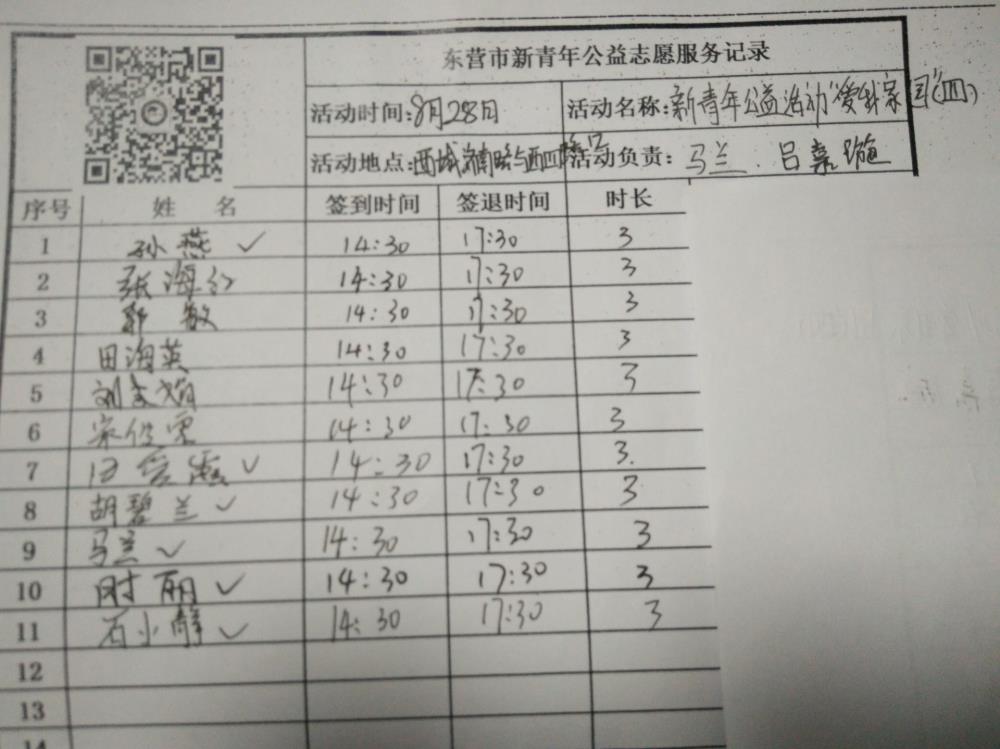 东营市新青年公益志愿服务记录
活动时间:8月28日 活动名称:新青年公益活动"爱我家园"(四)
活动地点:西城 路与西四路口 活动负责:马兰、吕嘉璇
序号 姓 名 签到时间 签退时间 时长
1 孙燕 ✓ 14:30 17:30 3
2 张海红 14:30 17:30 3
3 郭敏 14:30 17:30 3
4 田海英 14:30 17:30 3
5 刘 娟 14:30 17:30 3
6 14:30 17:30 3
7 ✓ 14:30 17:30 3.
8 胡碧兰 ✓ 14:30 17:30 3
9 马兰 ✓ 14:30 17:30 3
10 时丽 ✓ 14:30 17:30 3
11 石小静 ✓ 14:30 17:30 3
12
13
14